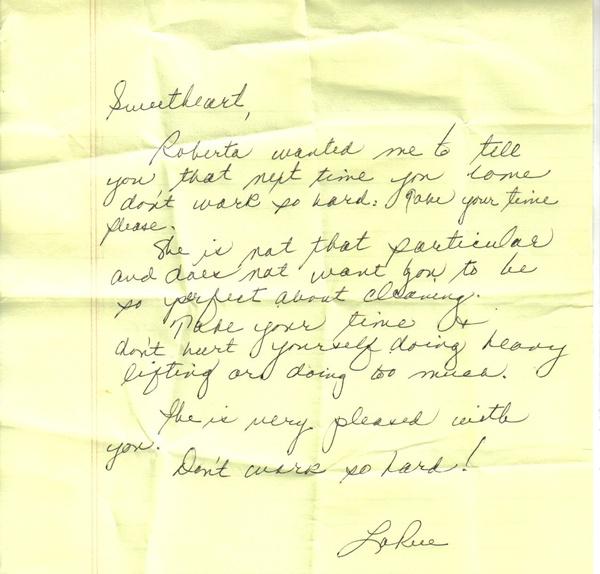 Sweetheart,
Roberta wanted me to tell
you that next time you come
don't work so hard: Take your time
please.
She is not that particular
and does not want you to be
so perfect about cleaning.
Take your time &
don't hurt yourself doing heavy
lifting or doing to much.
She is very pleased with
you.
Don't work so hard!
LaRue